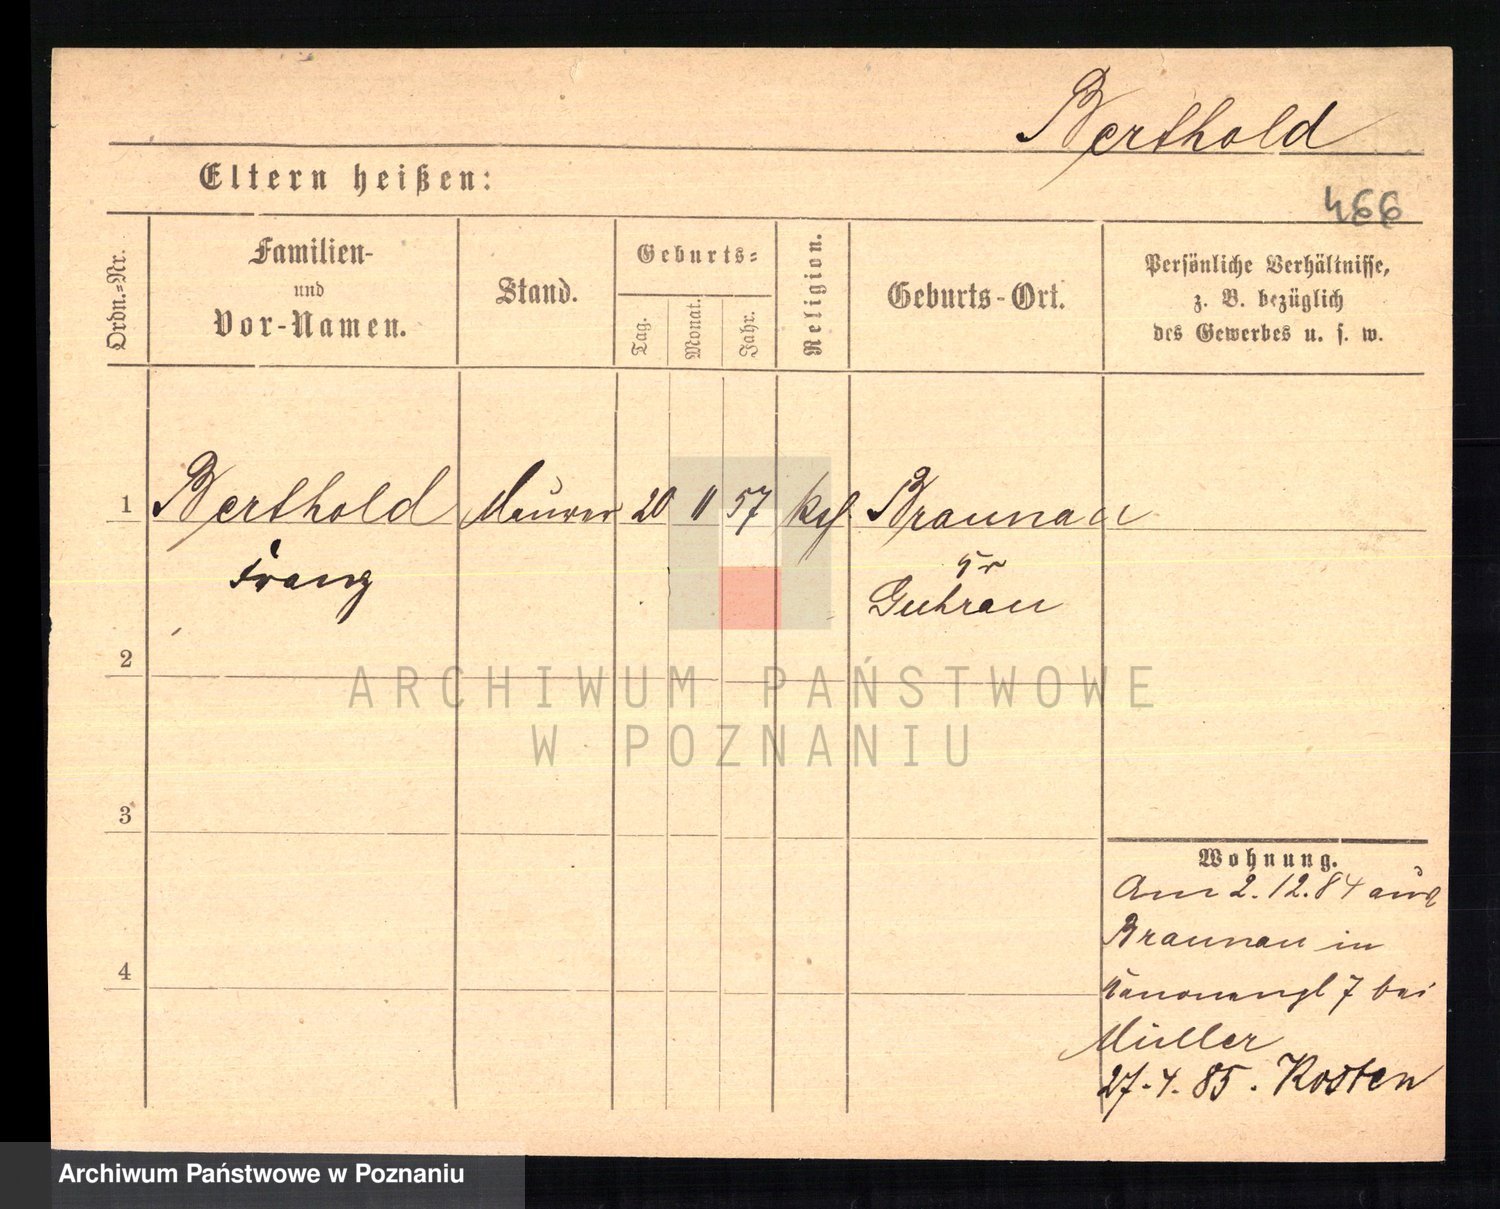 Berthold
Eltern heißen:
466
Ordn.=Nr.
Familien-
und
Vor-Namen.
Stand.
Geburts=
Tag.
Monat.
Jahr.
Religion.
Geburts-Ort.
Persönliche Verhältnisse,
z. B. bezüglich
des Gewerbes u. s. w.
1 Berthold Maurer 20 11 57 kath. Braunau
Franz
Kr
Guhrau
2
ARCHIWUM PAŃSTWOWE
W POZNANIU
3
Wohnung.
Am 2.12.84 aus
Braunau in
4
7 bei
Müller
27.4.85. Kosten
Archiwum Państwowe w Poznaniu